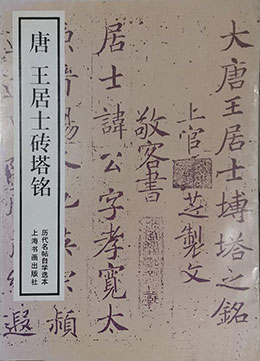 唐 王居士砖塔铭
历代名帖自学选本
上海书画出版社
大唐王居士塼塔之銘
上官芝製文
敬客書
居士諱公字孝寬太
原晉陽
遐